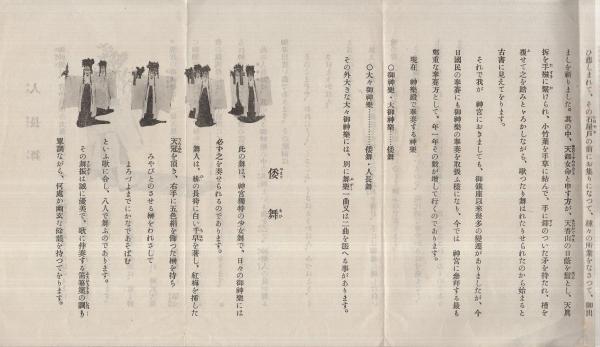 ひ遊しまれて、その石屋戸の前にお集りになつて、種々の所業をなさつて、御出
ましを祈りました。其の中、天鈿女命と申す方が、天香山の日蔭を鬘とし、天眞
拆を手繦に繫けられ、小竹葉を手草に結んで、手に鐸のついた矛を持たれ、槽を
覆せて之を踏みとゞろかしながら、歌つたり舞はれたりせられたのから始まると
古書に見えてをります。
それで我が　神宮におきましても、御鎭座以來幾多の變遷がありましたが、今
日國民の奉賽にも御神樂の奉奏を取扱ふ樣になり、今では　神宮に參拜する最も
鄭重な奉賽方として、年一年その數が增して行くのであります。
現在　神樂殿で奉奏する神樂
〇御神樂・大御神樂………倭舞
〇大々御神樂………倭舞・人長舞
その外大きな大々御神樂には、別に舞樂一曲又は二曲を添へる事があります。
倭舞
此の舞は、神宮獨特の少女舞で、日々の御神樂には
必ず之を奏せられるのであります。
舞人は、緋の長袴に白い千早を著し、紅梅を挿した
天冠を頂き、右手に五色絹を飾つた榊を持ち
みやびとのさせる榊をわれさして
よろづよまでにかなであそばむ
といふ歌に合し、八人で舞ふのであります。
その舞振は誠に優美で、歌に伴奏する笛篳篥の調も
單調ながら、何處か幽玄な餘韻を持つてをります。